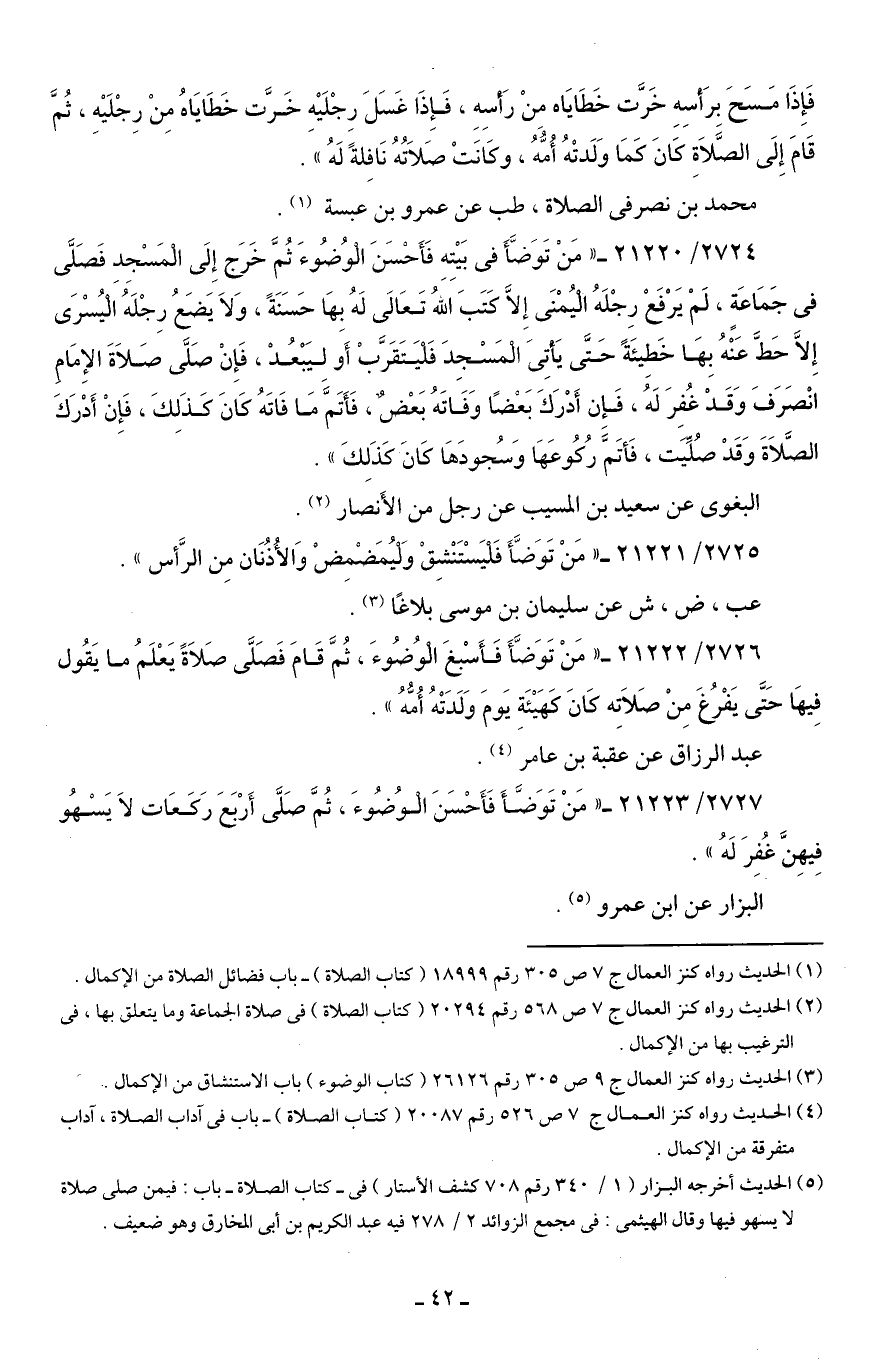 فَإِذَا مَسَحَ بِرَأْسِهِ خَرَّتْ خَطَايَاه مِنْ رَأْسِهِ ، فَإِذَا غَسَلَ رِجْلَيْهِ خَرَّتْ خَطَايَاهُ مِنْ رِجْلَيْهِ ، ثُمَّ
قَامَ إِلَى الصَّلاَةِ كَانَ كَمَا وَلَدتْهُ أُمُّهُ ، وكَانَتْ صَلاَتُهُ نَافِلةً لَهُ » .
محمد بن نصر فى الصلاة ، طب عن عمرو بن عبسة (١) .
٢٧٢٤/ ٢١٢٢٠ ـ « مَنْ تَوَضَّأَ فى بَيْتِهِ فَأَحْسَنَ الْوُضُوءَ ثُمَّ خَرَجَ إِلَى الْمَسْجِدِ فَصَلَّى
فى جَمَاعَةٍ ، لَمْ يَرْفَعْ رِجْلَهُ الْيُمْنَى إِلاَّ كَتَبَ اللهُ تَعَالَى لَهُ بِهَا حَسَنَةً ، وَلاَ يَضَعُ رِجْلَهُ الْيُسْرَى
إِلاَّ حَطَّ عَنْهُ بِهَا خَطِيئَةً حَتَّى يَأْتِىَ الْمَسْجِدَ فَلْيَتَقَرَّبْ أَو لِيَبْعُدْ ، فَإِنْ صَلَّى صَلاَةَ الإِمَامِ
انْصَرَفَ وَقَدْ غُفِرَ لَهُ ، فَإِن أَدْرَكَ بَعْضًا وَفَاتَهُ بَعْضٌ ، فَأَتَمَّ مَا فَاتَهُ كَانَ كَذلِكَ ، فَإِنْ أَدْرَكَ
الصَّلاَةَ وَقَدْ صُلِّيَت ، فَأَتمَّ رُكُوعَهَا وَسُجودَهَا كَانَ كَذَلِكَ » .
البغوى عن سعيد بن المسيب عن رجل من الأنصار (٢) .
٢٧٢٥/ ٢١٢٢١ ـ « مَنْ تَوَضَّأَ فَلْيَسْتَنْشِقْ وَلْيُمَضْمِضْ وَالأُذُنَانِ مِن الرَّأْس » .
عب ، ض ، ش عن سليمان بن موسى بلاغًا (٣) .
٢٧٢٦/ ٢١٢٢٢ ـ « مَنْ تَوَضَّأَ فَأَسْبَغَ الْوُضُوءَ ، ثُمَّ قَامَ فَصَلَّى صَلاَةً يَعْلَمُ مَا يَقُول
فِيهَا حَتَّى يَفْرُغَ مِنْ صَلاَتِهِ كَانَ كَهَيْئَةِ يَومَ وَلَدَتْهُ أُمُّهُ » .
عبد الرزاق عن عقبة بن عامر (٤) .
٢٧٢٧/ ٢١٢٢٣ ـ « مَنْ تَوَضَّأَ فَأَحْسَنَ الْوُضُوءَ ، ثُمَّ صَلَّى أَرْبَعَ رَكَعَات لاَ يَسْهُو
فِيهِنَّ غُفِرَ لَهُ » .
البزار عن ابن عمرو (٥) .
(١) الحديث رواه كنز العمال ج ٧ ص ٣٠٥ رقم ١٨٩٩٩ ( كتاب الصلاة ) ـ باب فضائل الصلاة من الإكمال .
(٢) الحديث رواه كنز العمال ج ٧ ص ٥٦٨ رقم ٢٠٢٩٤ ( كتاب الصلاة ) فى صلاة الجماعة وما يتعلق بها ، فى
الترغيب بها من الإكمال .
(٣) الحديث رواه كنز العمال ج ٩ ص ٣٠٥ رقم ٢٦١٢٦ ( كتاب الوضوء ) باب الاستنشاق من الإكمال .
(٤) الحديث رواه كنز العمال ج ٧ ص ٥٢٦ رقم ٢٠٠٨٧ ( كتاب الصلاة ) ـ باب فى آداب الصلاة ، آداب
متفرقة من الإكمال .
(٥) الحديث أخرجه البزار ( ١ / ٣٤٠ رقم ٧٠٨ كشف الأستار ) فى ـ كتاب الصلاة ـ باب : فيمن صلى صلاة
لا يسهو فيها وقال الهيثمى : فى مجمع الزوائد ٢ / ٢٧٨ فيه عبد الكريم بن أبى المخارق وهو ضعيف .
ـ ٤٢ ـ